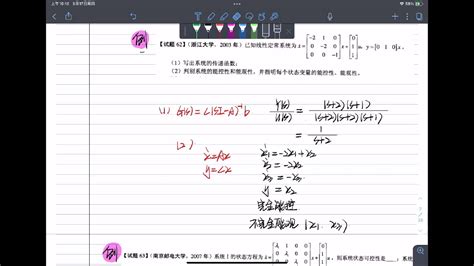 上午10:10 5月17日周二
例
【试题 62】(浙江大学, 2003 年) 已知线性定常系统为 ẋ = [-2 1 0; 0 -2 0; 0 0 -1] x + u, y = [0 1 0] x.
(1) 写出系统的传递函数;
(2) 判别系统的能控性和能观性, 并指明每个状态变量的能控性、能观性。
(1) G(s) = C(SI-A)⁻¹b
Y(s)/U(s) = (s+2)(s+1)/(s+2)(s+2)(s+1)
= 1/(s+2)
(2)
ẋ = Ax
y = Cx
ẋ₁ = -2x₁ + x₂
ẋ₂ = -2x₂
ẋ₃ = -x₃
y = x₂
完全能控
不完全能观 (x₁, x₃)
例
【试题 63】(南京邮电大学, 2007 年) 系统 1 的状态方程为 ẋ = , 则系统状态可控性是____;